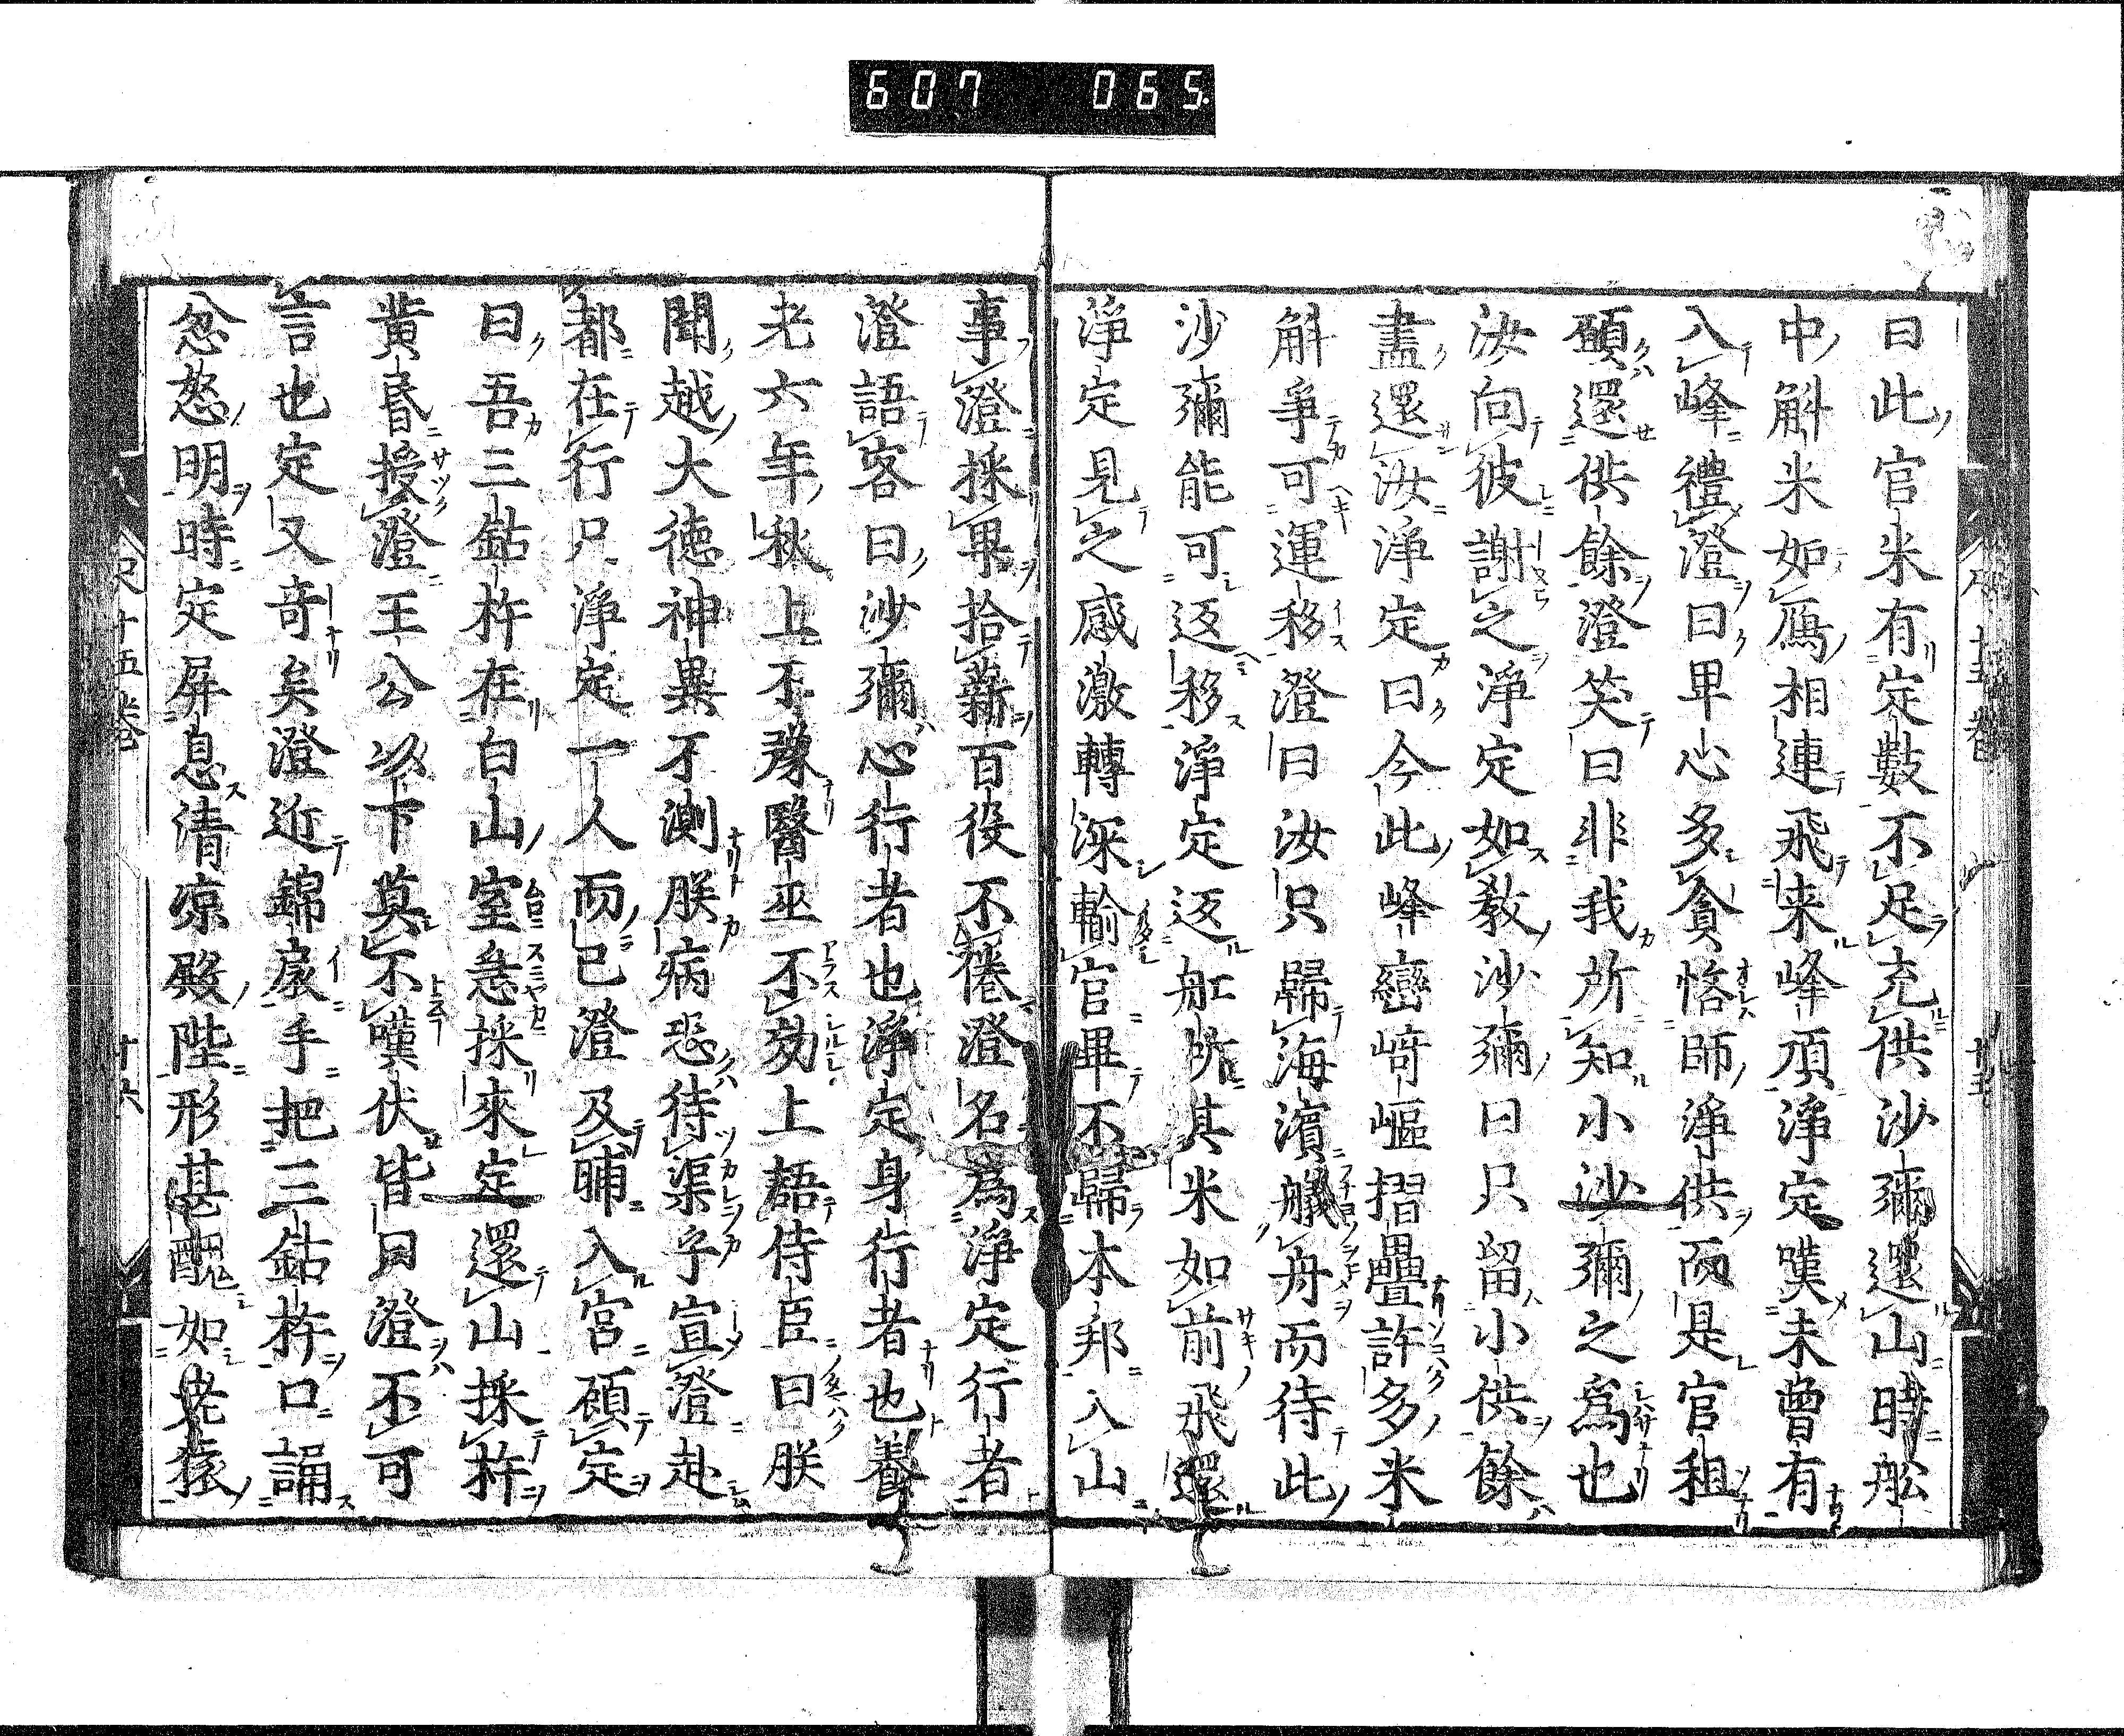 607 065.
曰此官米有定數不足充供沙彌還山時舩
中斛米如鴈相連飛来峰頂淨定嘆未曾有
入峰禮澄曰卑心多貪恡師淨供而是官租
願還供餘澄笑曰非我所知小沙彌之為也
汝向彼謝之淨定如教沙彌曰只留小供餘
盡還汝淨定曰今此峰巒﨑嶇摺疊許多米
斛爭可運移澄曰汝只歸海濱艤舟而待此
沙彌能可返移淨定返舩所其米如前飛還
淨定見之感激轉深輸官畢不歸本邦入山
事澄採果拾薪百役不倦澄名為淨定行者
澄語客曰沙彌心行者也淨定身行者也養
老六年秋上不豫醫巫不効上語侍臣曰朕
聞越大徳神異不測朕病恐待渠乎宣澄赴
都在行只淨定一人而已澄及晡入宮顧定
曰吾三鈷杵在白山室急採來定還山採杵
黄昏授澄王公以下莫不嘆伏皆曰澄不可
言也定又竒矣澄近錦扆手把三鈷杵口誦
忿怒明時定屏息清凉殿陛形甚醜如老猿
十五卷
十五
尺十五卷
十六